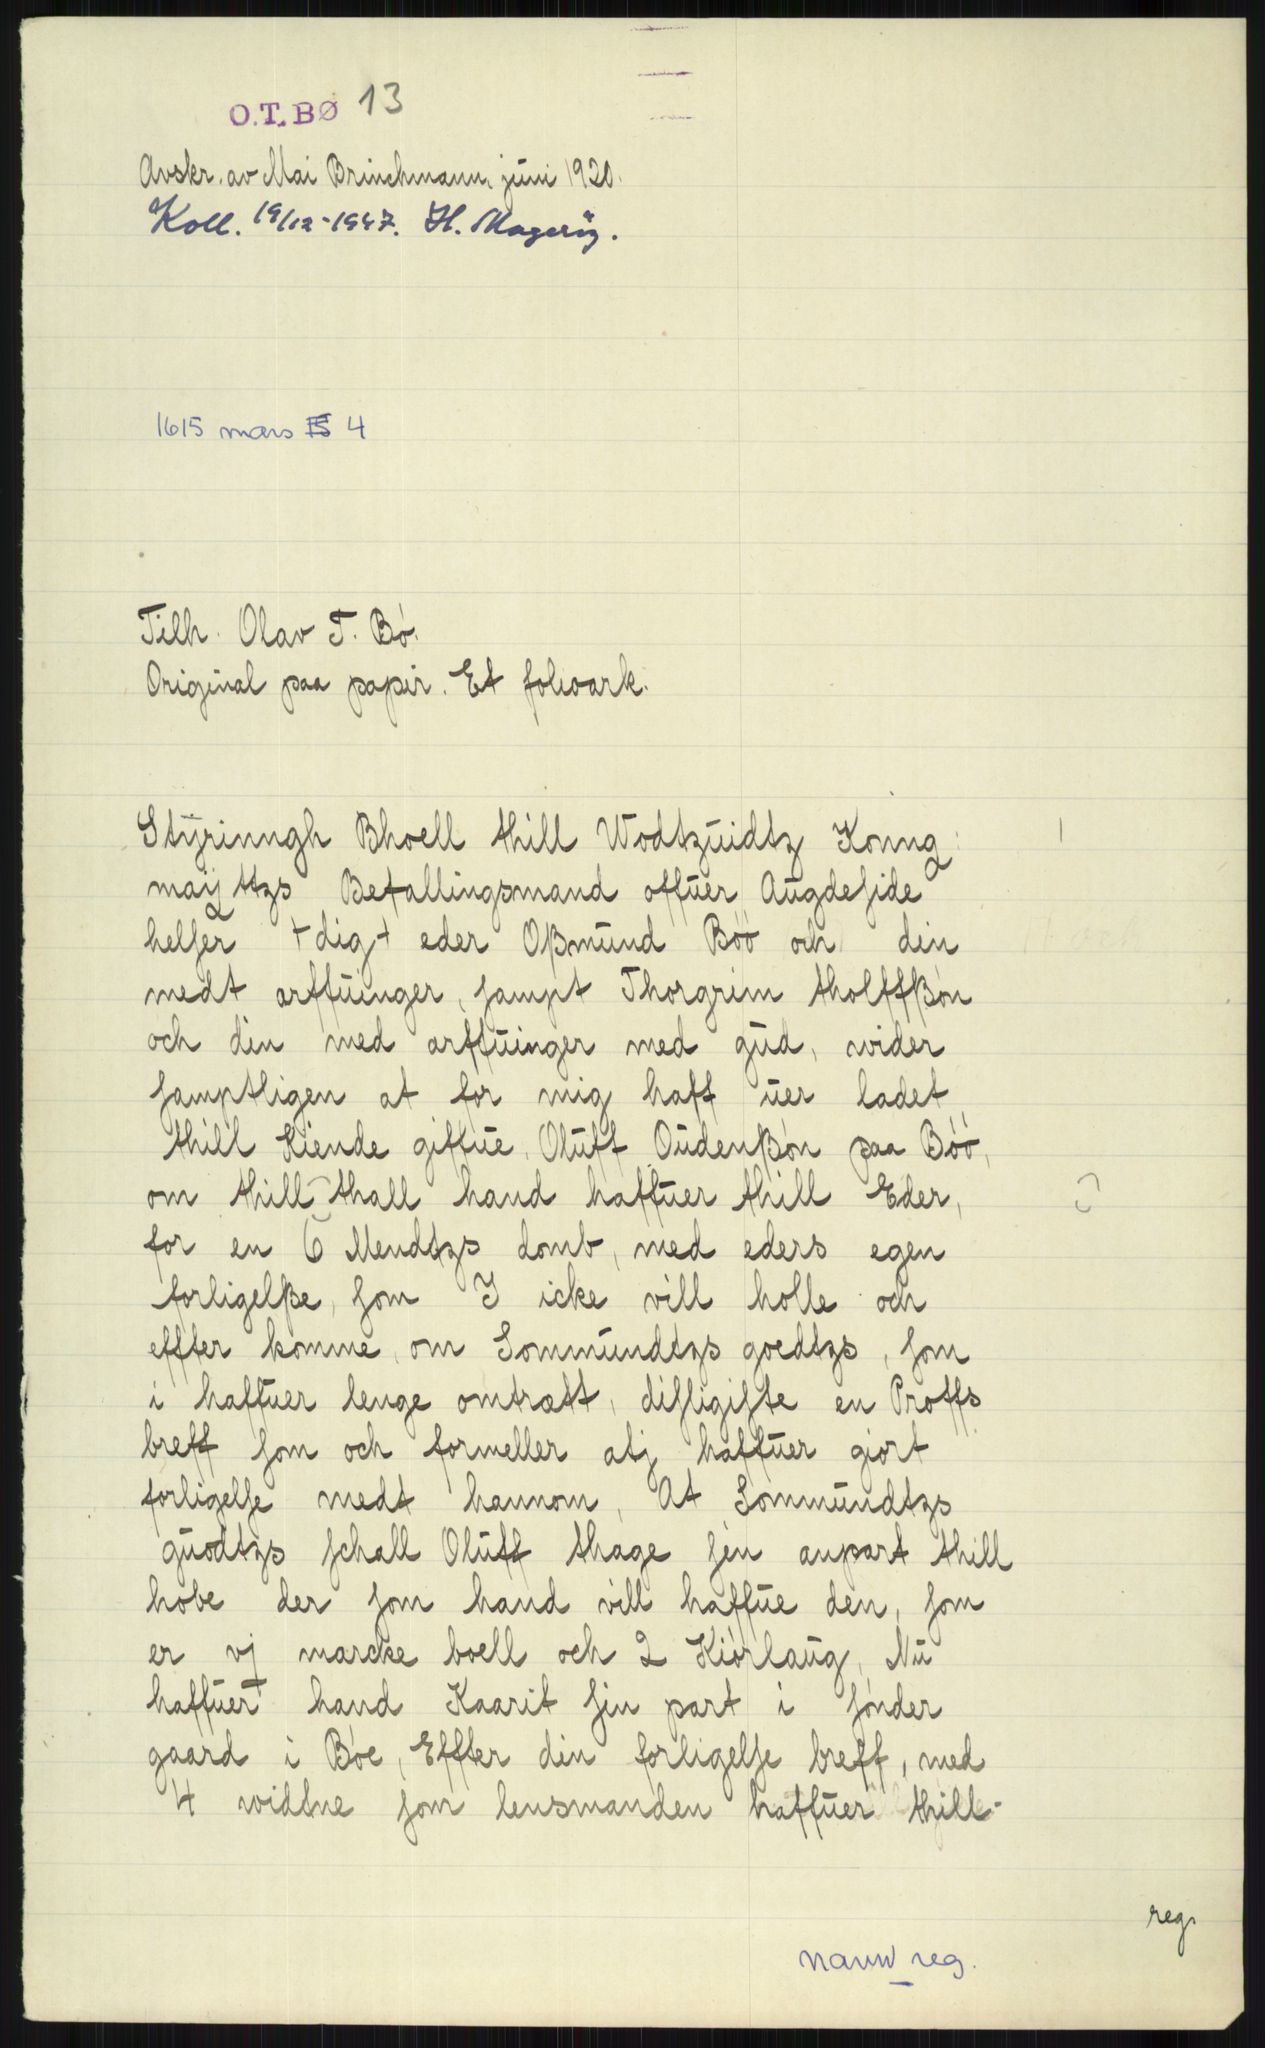 O.T.BØ 13
Avskr. av Mai Brinchmann, juni 1920.
Koll. 19/12-1947. H. Magerøy.
1615 mars 4
Tilh. Olav T. Bø.
Original paa papir. Et folioark.
Styrinngh Bhoell thill Wodtzuidtz Konng:
maijttzs Befallingsmand offuer Augdeside
helser + dig + eder Oßmund Böö och din
medt arffuinger, sampt Thorgrim tholffßøn
och din med arffuinger med gud, wider
samptligen at for mig haff uer ladet
thill kiende giffue, Oluff Oudenßøn paa Böö,
om thill-thall hand haffuer thill Eder,
for en 6 Mendtzs domb, med eders egen
forligelße, som I icke vill holle och
effter komme, om Sommundtzs goedtzs, som
i haffuer lenge omtrætt, disligiste en Proffs
breff som och formeller atj haffuer giort
forligelse medt hannom, At Sommundtzs
guodtzs schall Oluff thage sen anpart thill
hobe der som hand vill haffue den, som
er vj marcke boell och 2 Kiørlaug, Nu
haffuer hand Kaarit sin part i sønder
gaard i Bøe, Effter din forligelse breff, med
4 widtne som lensmanden haffuer thill-
reg.
navn reg.